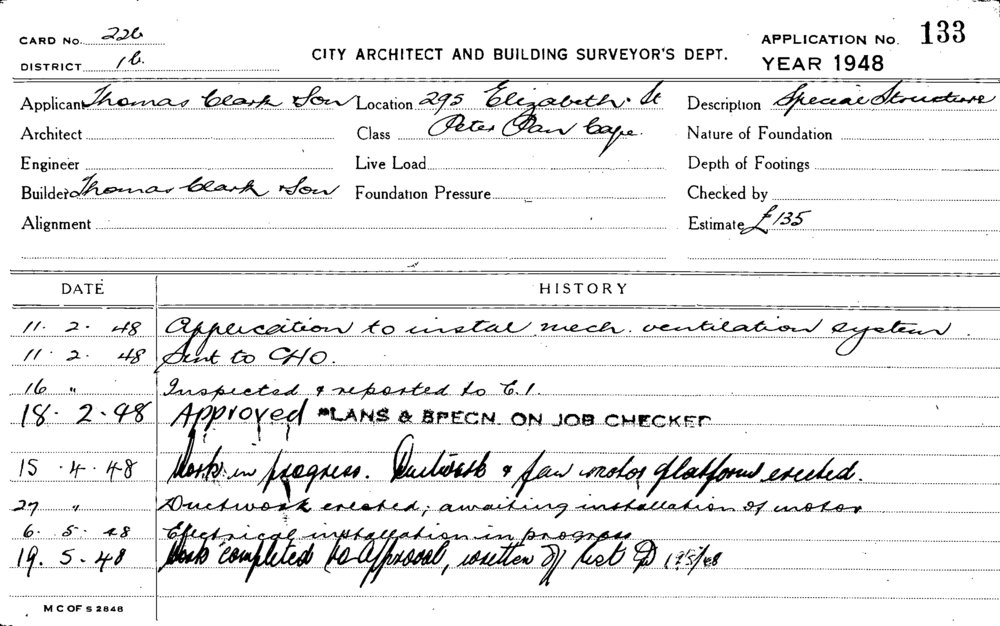 CARD No. 226
DISTRICT 1b.
CITY ARCHITECT AND BUILDING SURVEYOR'S DEPT.
APPLICATION No. 133
YEAR 1948
Applicant Thomas Clark & Son Location 295 Elizabeth St Description Special Structure
Architect Class Peter Pan Cafe. Nature of Foundation
Engineer Live Load Depth of Footings
Builder Thomas Clark & Son Foundation Pressure Checked by
Alignment Estimate £135
DATE HISTORY
11. 2. 48 Application to instal mech. ventilation system.
11. 2. 48 Sent to CHO.
16 " Inspected & reported to C.I.
18. 2. 48 Approved PLANS & SPECN. ON JOB CHECKED
15 . 4 . 48 Work in progress. Ductwork & fan motor platform erected.
27 " Ductwork erected; awaiting installation of motor
6. 5. 48 Electrical installation in progress
19. 5. 48 Work completed to approval, written off list 19/5/48
M C OF S 2848